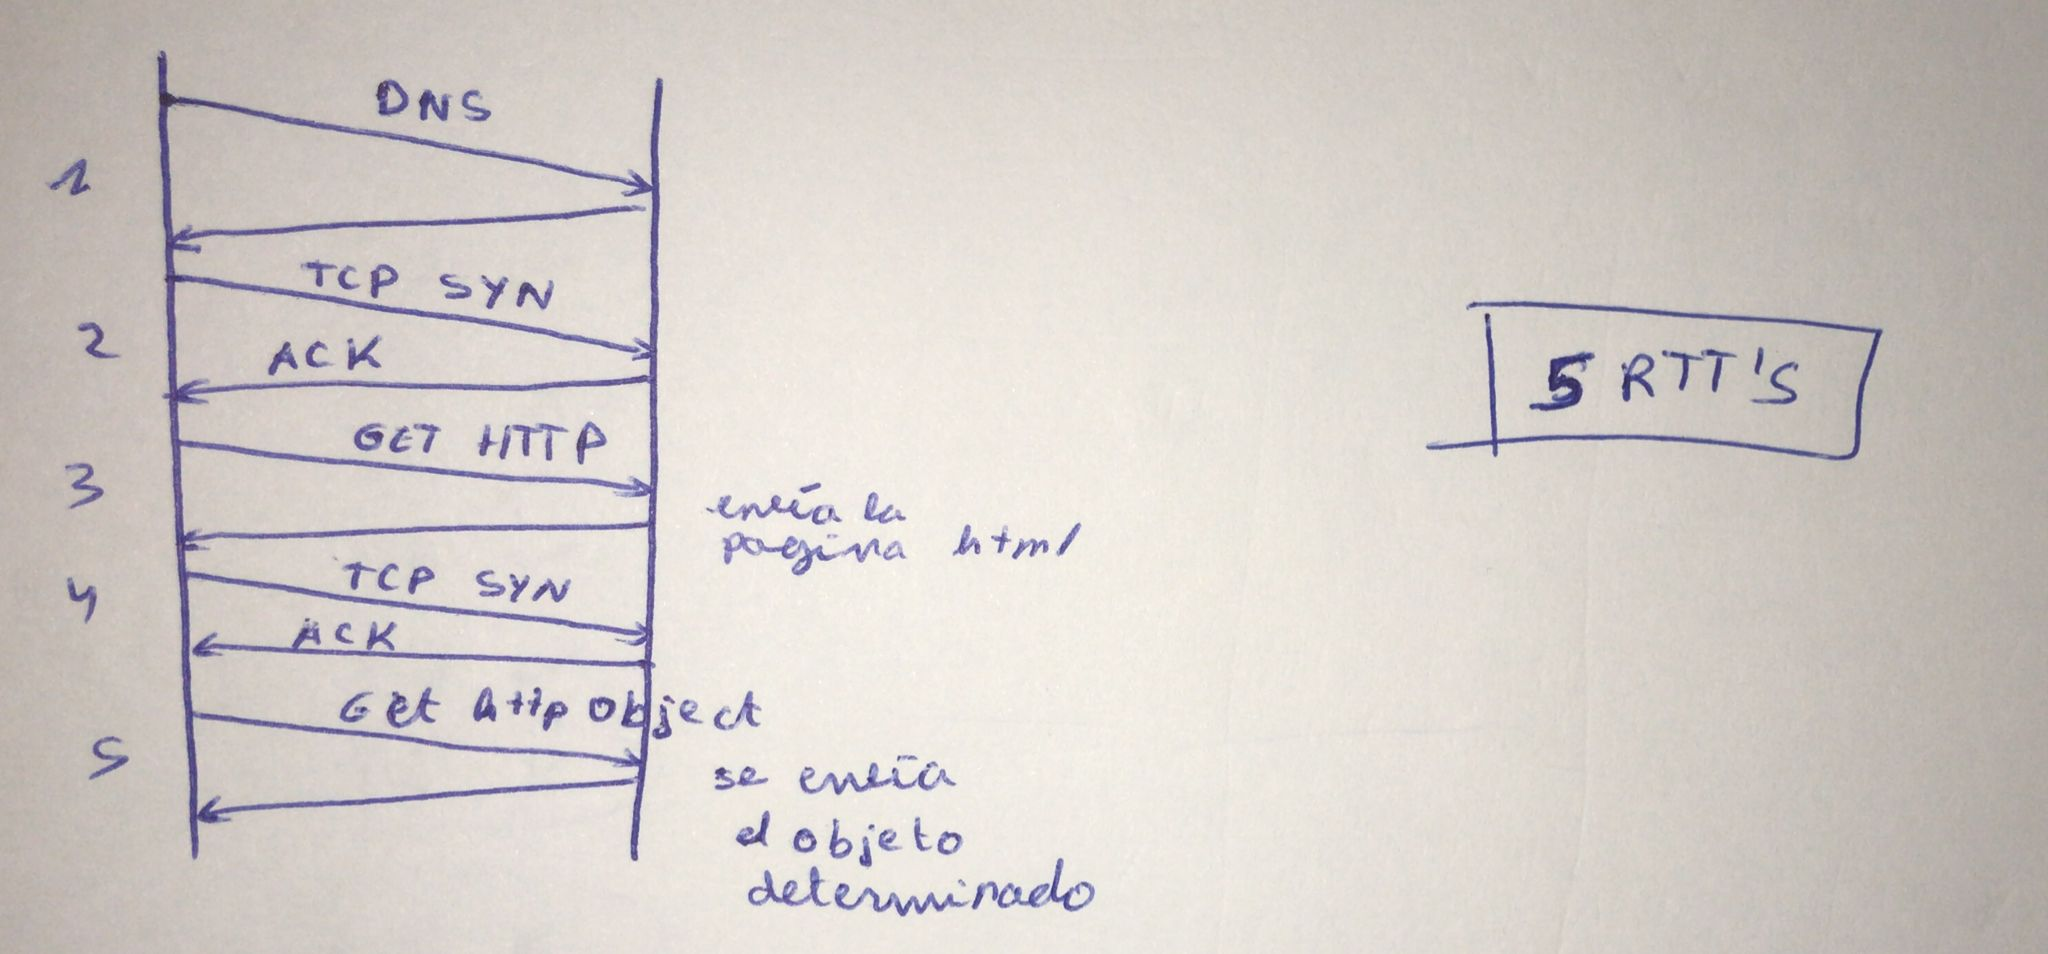 DNS
1
TCP SYN
2
ACK
GET HTTP
3
envía la
pagina html
TCP SYN
4
ACK
Get http object
5
se envía
el objeto
determinado
5 RTT'S